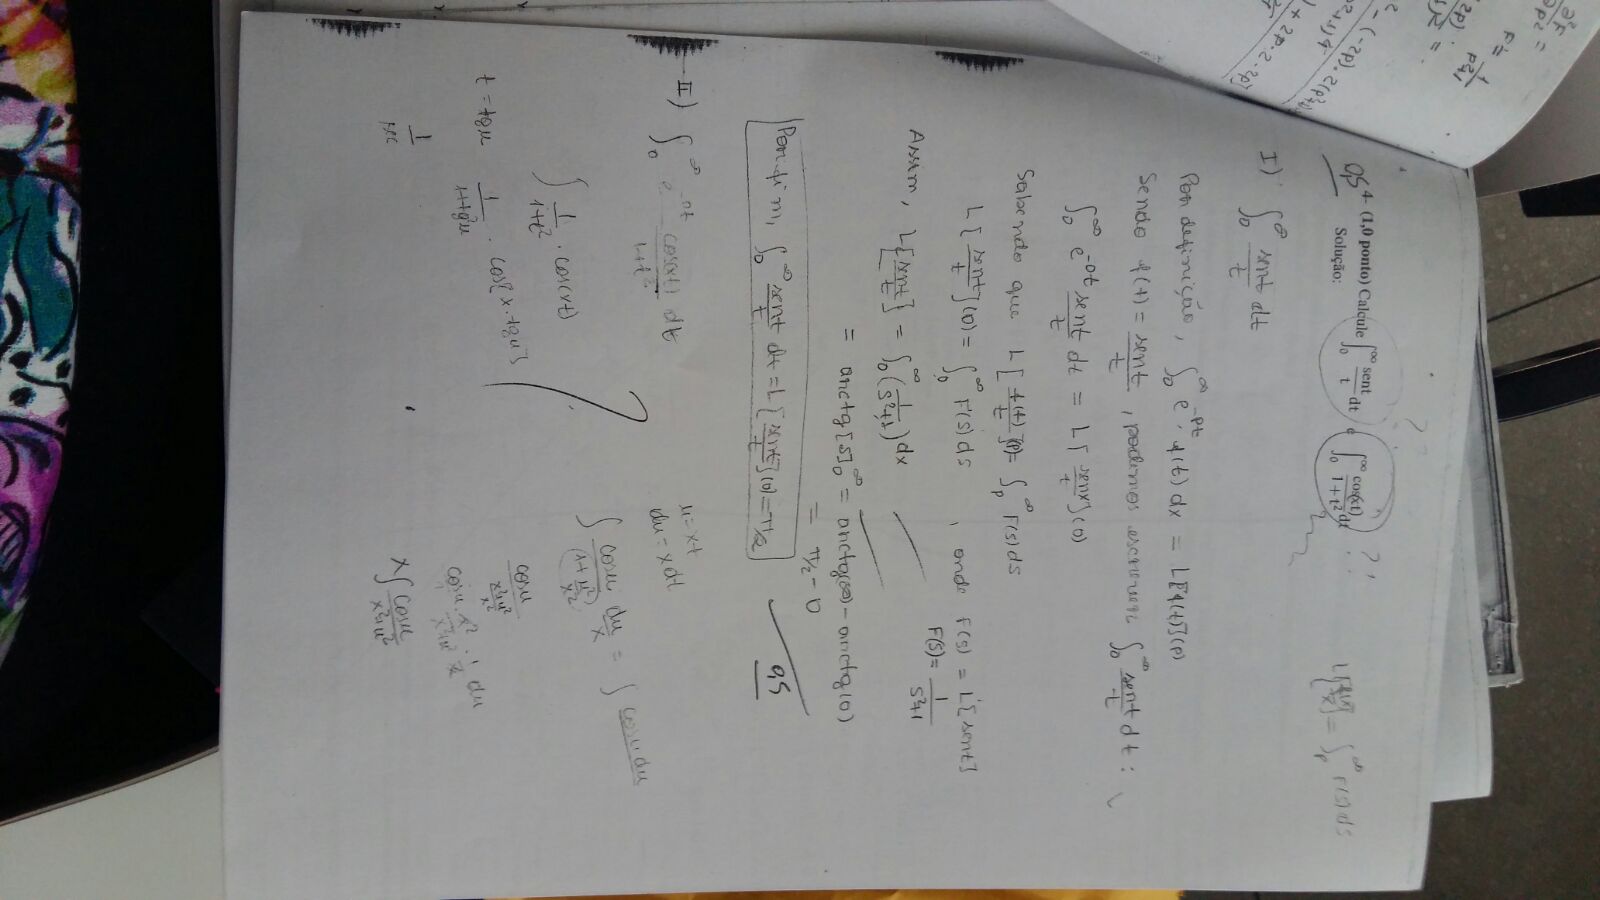 0,5
4 (1,0 ponto) Calcule ∫₀^∞ sent/t dt e ∫₀^∞ cos(xt)/(1+t²) dt ??
Solução:
L[] = ∫_p^∞ F(s)ds
I) ∫₀^∞ sent/t dt
Por definição, ∫₀^∞ e^{-pt} f(t) dx = L[f(t)](p)
Sendo f(t) = sent/t, podemos escrever ∫₀^∞ sent/t dt :
∫₀^∞ e^{-0t} sent/t dt = L[senx/t](0)
Sabendo que L[f(t)/t](p) = ∫_p^∞ F(s)ds
L[sent/t](0) = ∫₀^∞ F(s)ds, onde F(s) = L[sent]
F(s) = 1/(s²+1)
Assim, L[sent/t] = ∫₀^∞ (1/(s²+1)) dx
= arctg[s]₀^∞ = arctg(∞) - arctg(0)
= π/2 - 0
Por fim, ∫₀^∞ sent/t dt = L[sent/t](0) = π/2
0,5
II) ∫₀^∞ e^{-0t} cos(xt)/(1+t²) dt
u = xt
du = x dt
∫ 1/(1+t²) · cos(xt)
∫ cosu/(1+u²/x²) du/x = ∫ cosu du
t = tgu
1/(1+tg²u) · cos[x·tgu]
cosu/((x²+u²)/x²)
cosu · x²/(x²+u²) · 1/x du
1/sec
x∫ cosu/(x²+u²)